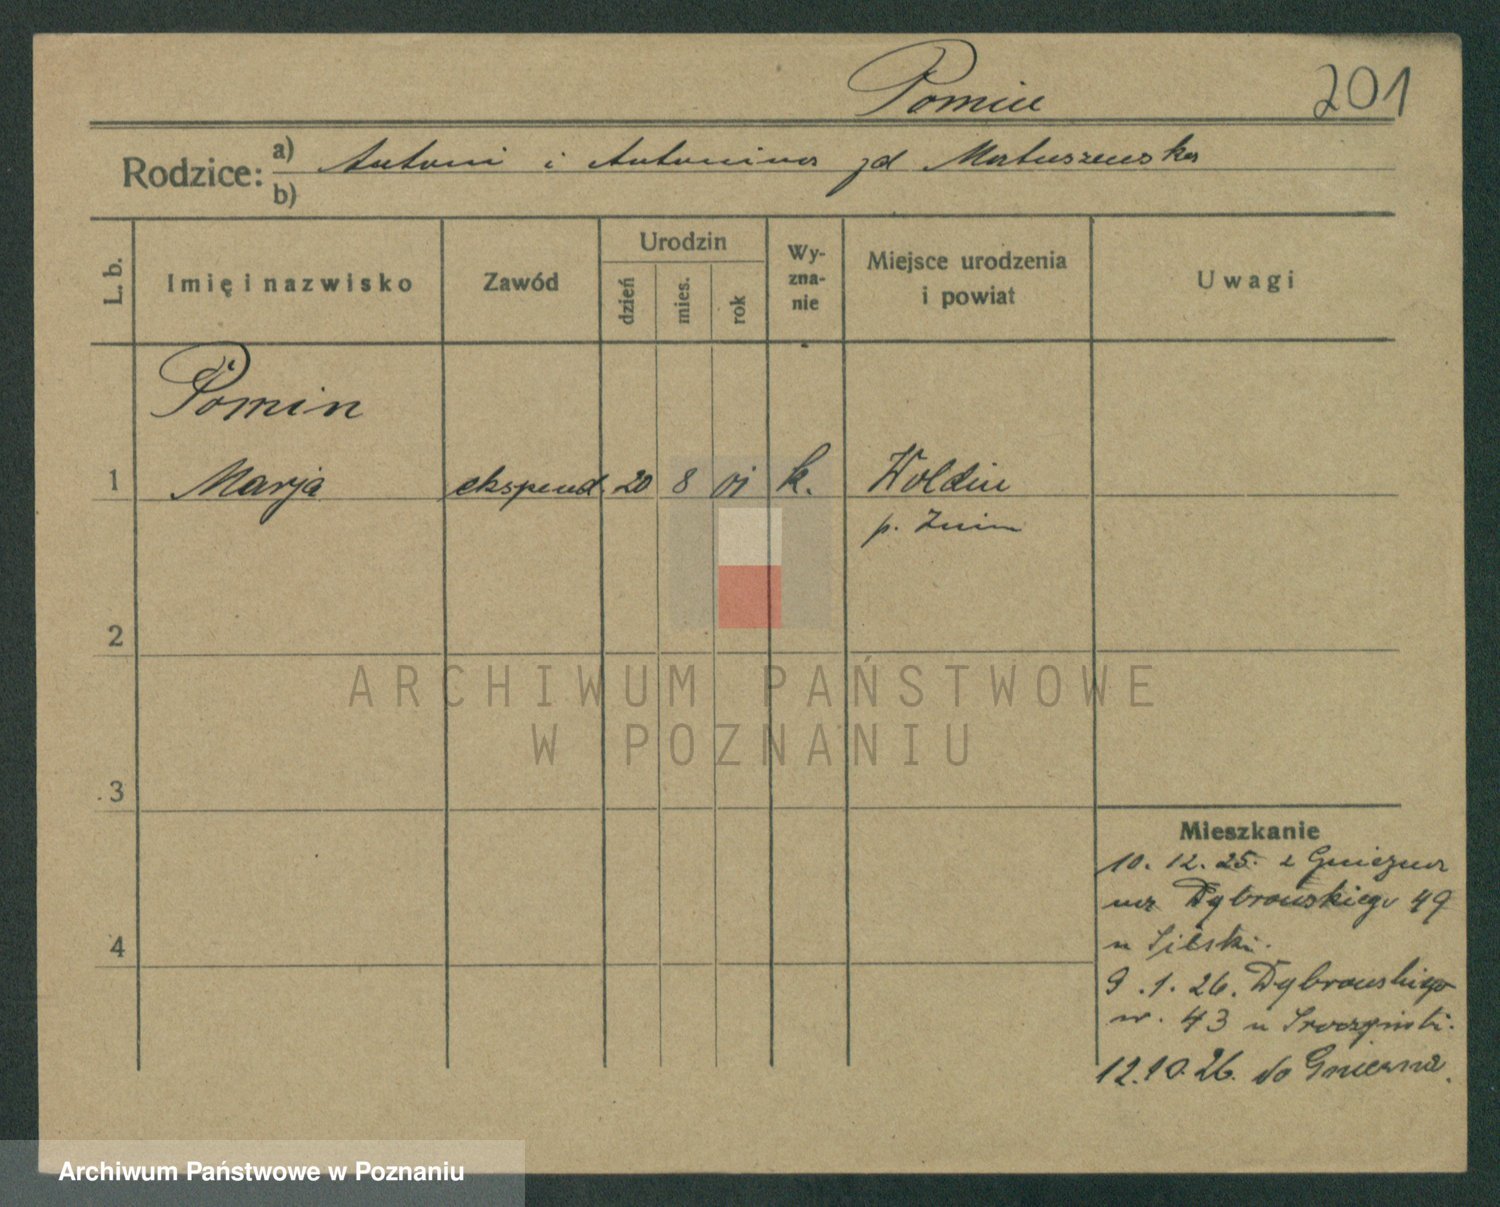 Pomin
201
Rodzice:
a) Antoni i Antonina zd Matuszewska
b)
L. b.
Imię i nazwisko
Zawód
Urodzin
dzień
mies.
rok
Wy-
zna-
nie
Miejsce urodzenia
i powiat
Uwagi
Pomin
1 Marja ekspend. 20 8 01 k. Woldin
p. Żnin
2
3
4
ARCHIWUM PAŃSTWOWE
W POZNANIU
Mieszkanie
10. 12. 25. z Gniezna
na Dąbrowskiego 49
u
9. 1. 26. Dąbrowskiego
nr. 43 u
12. 10. 26. do Gniezna.
Archiwum Państwowe w Poznaniu